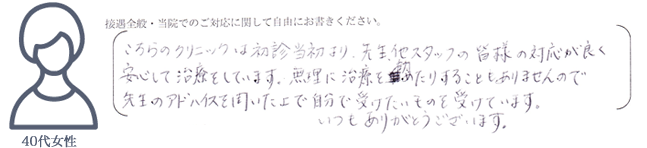 接遇全般・当院でのご対応に関して自由にお書きください。
こちらのクリニックは初診当初より、先生、他スタッフの皆様の対応が良く
安心して治療をしています。無理に治療を勧めたりすることもありませんので
先生のアドバイスを聞いた上で自分で受けたいものを受けています。
いつもありがとうございます。
40代女性